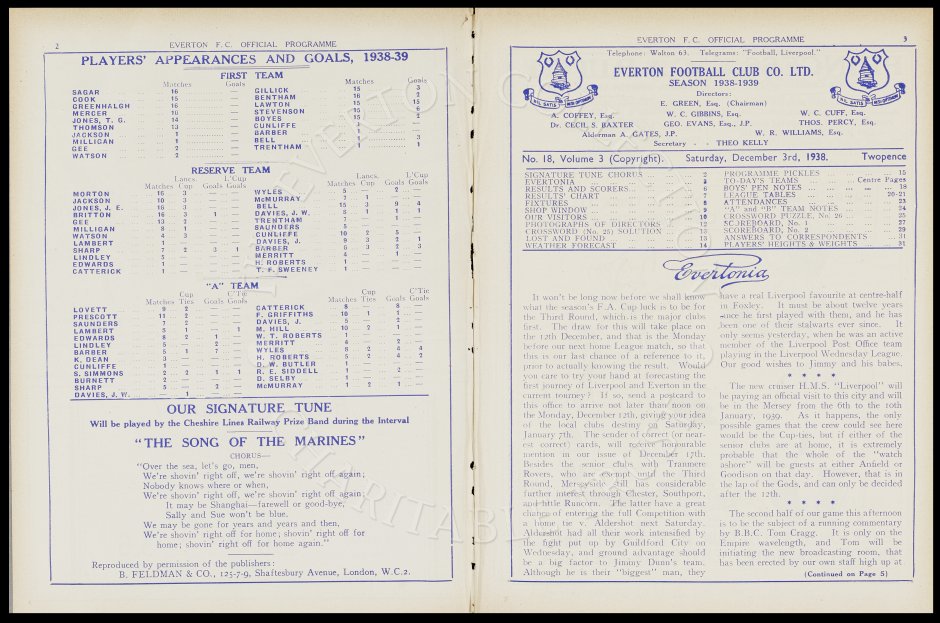 2
EVERTON F. C. OFFICIAL PROGRAMME
PLAYERS' APPEARANCES AND GOALS, 1938-39
FIRST TEAM
Matches Goals
SAGAR 16 —
COOK 15 —
GREENHALGH 16 —
MERCER 16 —
JONES, T. G. 14 —
THOMSON 13 —
JACKSON 1 —
MILLIGAN 1 —
GEE 2 —
WATSON 2 —
Matches Goals
GILLICK 15 3
BENTHAM 16 2
LAWTON 15 15
STEVENSON 15 6
BOYES 15 2
CUNLIFFE
BARBER 1
BELL 1 3
TRENTHAM 1 1
RESERVE TEAM
Lancs. L'Cup
Matches Cup Goals Goals
MORTON 16 3
JACKSON 10 3
JONES, J. E. 16 3
BRITTON 16 3 1
GEE 13 2
MILLIGAN 8 1
WATSON 4 3
LAMBERT 1
SHARP 7 2 3 1
LINDLEY 5
EDWARDS 1
CATTERICK 1
Lancs. L'Cup
Matches Cup Goals Goals
WYLES 5
McMURRAY
BELL 15 3 9 4
DAVIES, J. W.
TRENTHAM
SAUNDERS 5
CUNLIFFE 10 2 5
DAVIES, J. 9 3 2 1
BARBER 6 3 2 3
MERRITT 4
H. ROBERTS 1
T. F. SWEENEY 1
"A" TEAM
Cup C'Tie
Matches Ties Goals Goals
LOVETT 9 2
PRESCOTT 11 2
SAUNDERS 7 2
LAMBERT 7 1
EDWARDS 8 2 1
LINDLEY
BARBER 5 1 7
K. DEAN 3
CUNLIFFE 1
S. SIMMONS 2 2 1 1
BURNETT 2
SHARP
DAVIES, J. W. 1
Cup C'Tie
Matches Ties Goals Goals
CATTERICK 8
F. GRIFFITHS 10 1
DAVIES, J. 5
M. HILL 10 2 1
W. T. ROBERTS 1
MERRITT 4
WYLES 6 2 4 4
H. ROBERTS 5 2 4 2
D. W. BUTLER 1
R. E. SIDDELL 1
D. SELBY
McMURRAY 1 2 1
OUR SIGNATURE TUNE
Will be played by the Cheshire Lines Railway Prize Band during the Interval
"THE SONG OF THE MARINES"
CHORUS—
"Over the sea, let's go, men,
We're shovin' right off, we're shovin' right off again;
Nobody knows where or when,
We're shovin' right off, we're shovin' right off again;
It may be Shanghai—farewell or good-bye,
Sally and Sue won't be blue.
We may be gone for years and years and then,
We're shovin' right off for home; shovin' right off for
home; shovin' right off for home again."
Reproduced by permission of the publishers:
B. FELDMAN & CO., 125-7-9, Shaftesbury Avenue, London, W.C.2.
EVERTON F. C. OFFICIAL PROGRAMME
3
Telephone: Walton 63. Telegrams: "Football, Liverpool."
EVERTON FOOTBALL CLUB CO. LTD.
SEASON 1938-1939
Directors:
E. GREEN, Esq. (Chairman)
A. COFFEY, Esq. W. C. GIBBINS, Esq. W. C. CUFF, Esq.
Dr. CECIL S. BAXTER GEO. EVANS, Esq., J.P. THOS. PERCY, Esq.
Alderman A. GATES, J.P. W. R. WILLIAMS, Esq.
Secretary - - THEO KELLY
NIL SATIS NISI OPTIMUM
NIL SATIS NISI OPTIMUM
No. 18, Volume 3 (Copyright). Saturday, December 3rd, 1938. Twopence
SIGNATURE TUNE CHORUS 2
EVERTONIA
RESULTS AND SCORERS 6
RESULTS' CHART 7
FIXTURES 8
SHOP WINDOW 9
OUR VISITORS 10
PHOTOGRAPHS OF DIRECTORS 12
CROSSWORD (No. 25) SOLUTION 13
LOST AND FOUND 13
WEATHER FORECAST 14
PROGRAMME PICKLES 15
TO-DAY'S TEAMS Centre Pages
BOYS' PEN NOTES 18
LEAGUE TABLES 20-21
ATTENDANCES 23
"A" and "B" TEAM NOTES 24
CROSSWORD PUZZLE, No. 26 25
SCOREBOARD, No. 1 27
SCOREBOARD, No. 2 29
ANSWERS TO CORRESPONDENTS 31
PLAYERS' HEIGHTS & WEIGHTS 31
Evertonia
It won't be long now before we shall know
what the season's F.A. Cup luck is to be for
the Third Round, which is the major clubs
first. The draw for this will take place on
the 12th December, and that is the Monday
before our next home League match, so that
this is our last chance of a reference to it,
prior to actually knowing the result. Would
you care to try your hand at forecasting the
first journey of Liverpool and Everton in the
current tourney? If so, send a postcard to
this office to arrive not later than noon on
the Monday, December 12th, giving your idea
of the local clubs destiny on Saturday,
January 7th. The sender of correct (or near-
est correct) cards, will receive honourable
mention in our issue of December 17th.
Besides the senior clubs with Tranmere
Rovers, who are exempt until the Third
Round, Merseyside still has considerable
further interest through Chester, Southport,
and little Runcorn. The latter have a great
chance of entering the full Competition with
a home tie v. Aldershot next Saturday.
Aldershot had all their work intensified by
the fight put up by Guildford City on
Wednesday, and ground advantage should
be a big factor to Jimmy Dunn's team.
Although he is their "biggest" man, they
have a real Liverpool favourite at centre-half
in Foxley. It must be about twelve years
since he first played with them, and he has
been one of their stalwarts ever since. It
only seems yesterday, when he was an active
member of the Liverpool Post Office team
playing in the Liverpool Wednesday League.
Our good wishes to Jimmy and his babes.
* * * *
The new cruiser H.M.S. "Liverpool" will
be paying an official visit to this city and will
be in the Mersey from the 6th to the 10th
January, 1939. As it happens, the only
possible games that the crew could see here
would be the Cup-ties, but if either of the
senior clubs are at home, it is extremely
probable that the whole of the "watch
ashore" will be guests at either Anfield or
Goodison on that day. However, that is in
the lap of the Gods, and can only be decided
after the 12th.
* * * *
The second half of our game this afternoon
is to be the subject of a running commentary
by B.B.C. Tom Cragg. It is only on the
Empire wavelength, and Tom will be
initiating the new broadcasting room, that
has been erected by our own staff high up at
(Continued on Page 5)